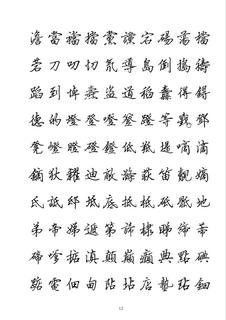 澹當襠擋黨讜宕碭蕩檔
菪刀叨忉氘導島倒搗禱
蹈到悼燾盜道稻纛得鍀
德的燈登噔簦蹬等戥鄧
凳嶝瞪磴鐙低羝堤嘀滴
鏑狄糴迪敵滌荻笛覿嫡
氐詆邸坻底抵柢砥骶地
弟帝娣遞第諦棣睇締蒂
碲嗲掂滇顛巔癲典點碘
踮電佃甸阽坫店墊玷鈿
12